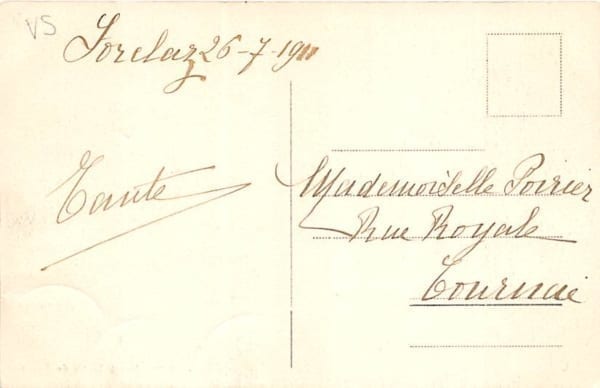 VS
Forclaz 26-7-1911
Tante
Mademoiselle Poirier
Rue Royale
Tournai